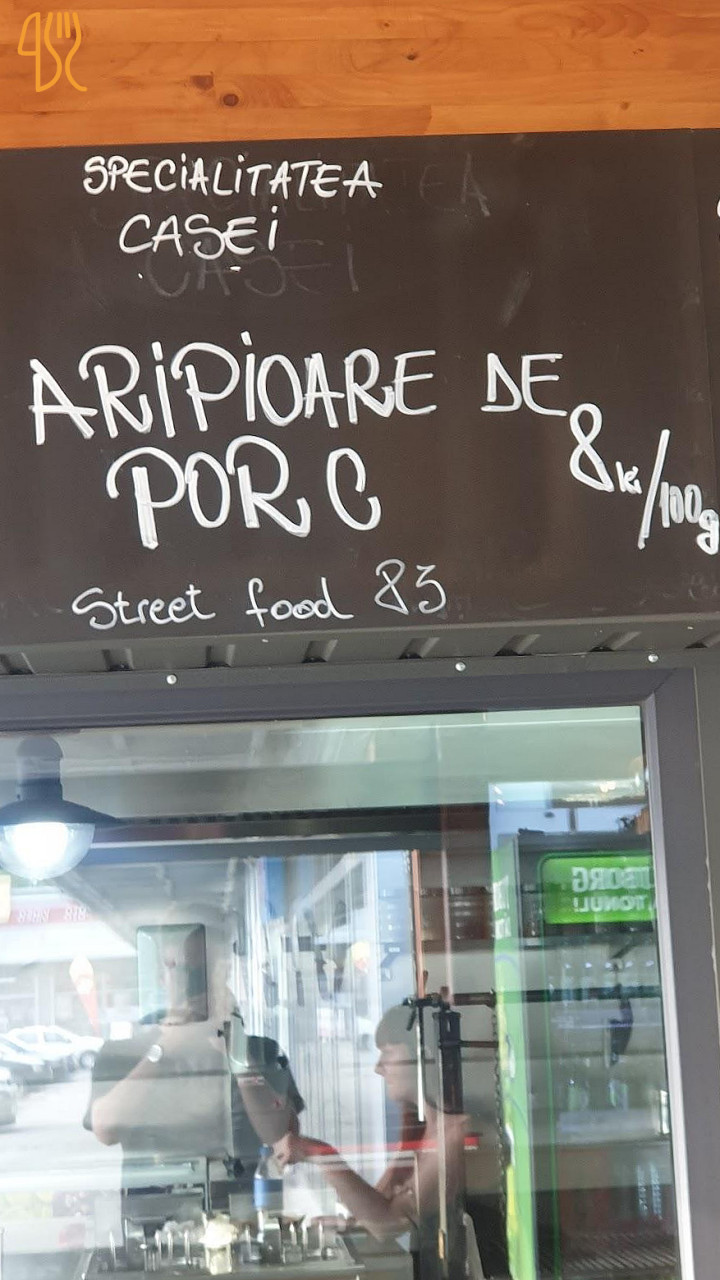 SPECIALITATEA
CASEI
ARIPIOARE DE
PORC
8 lei/100g
Street food 83